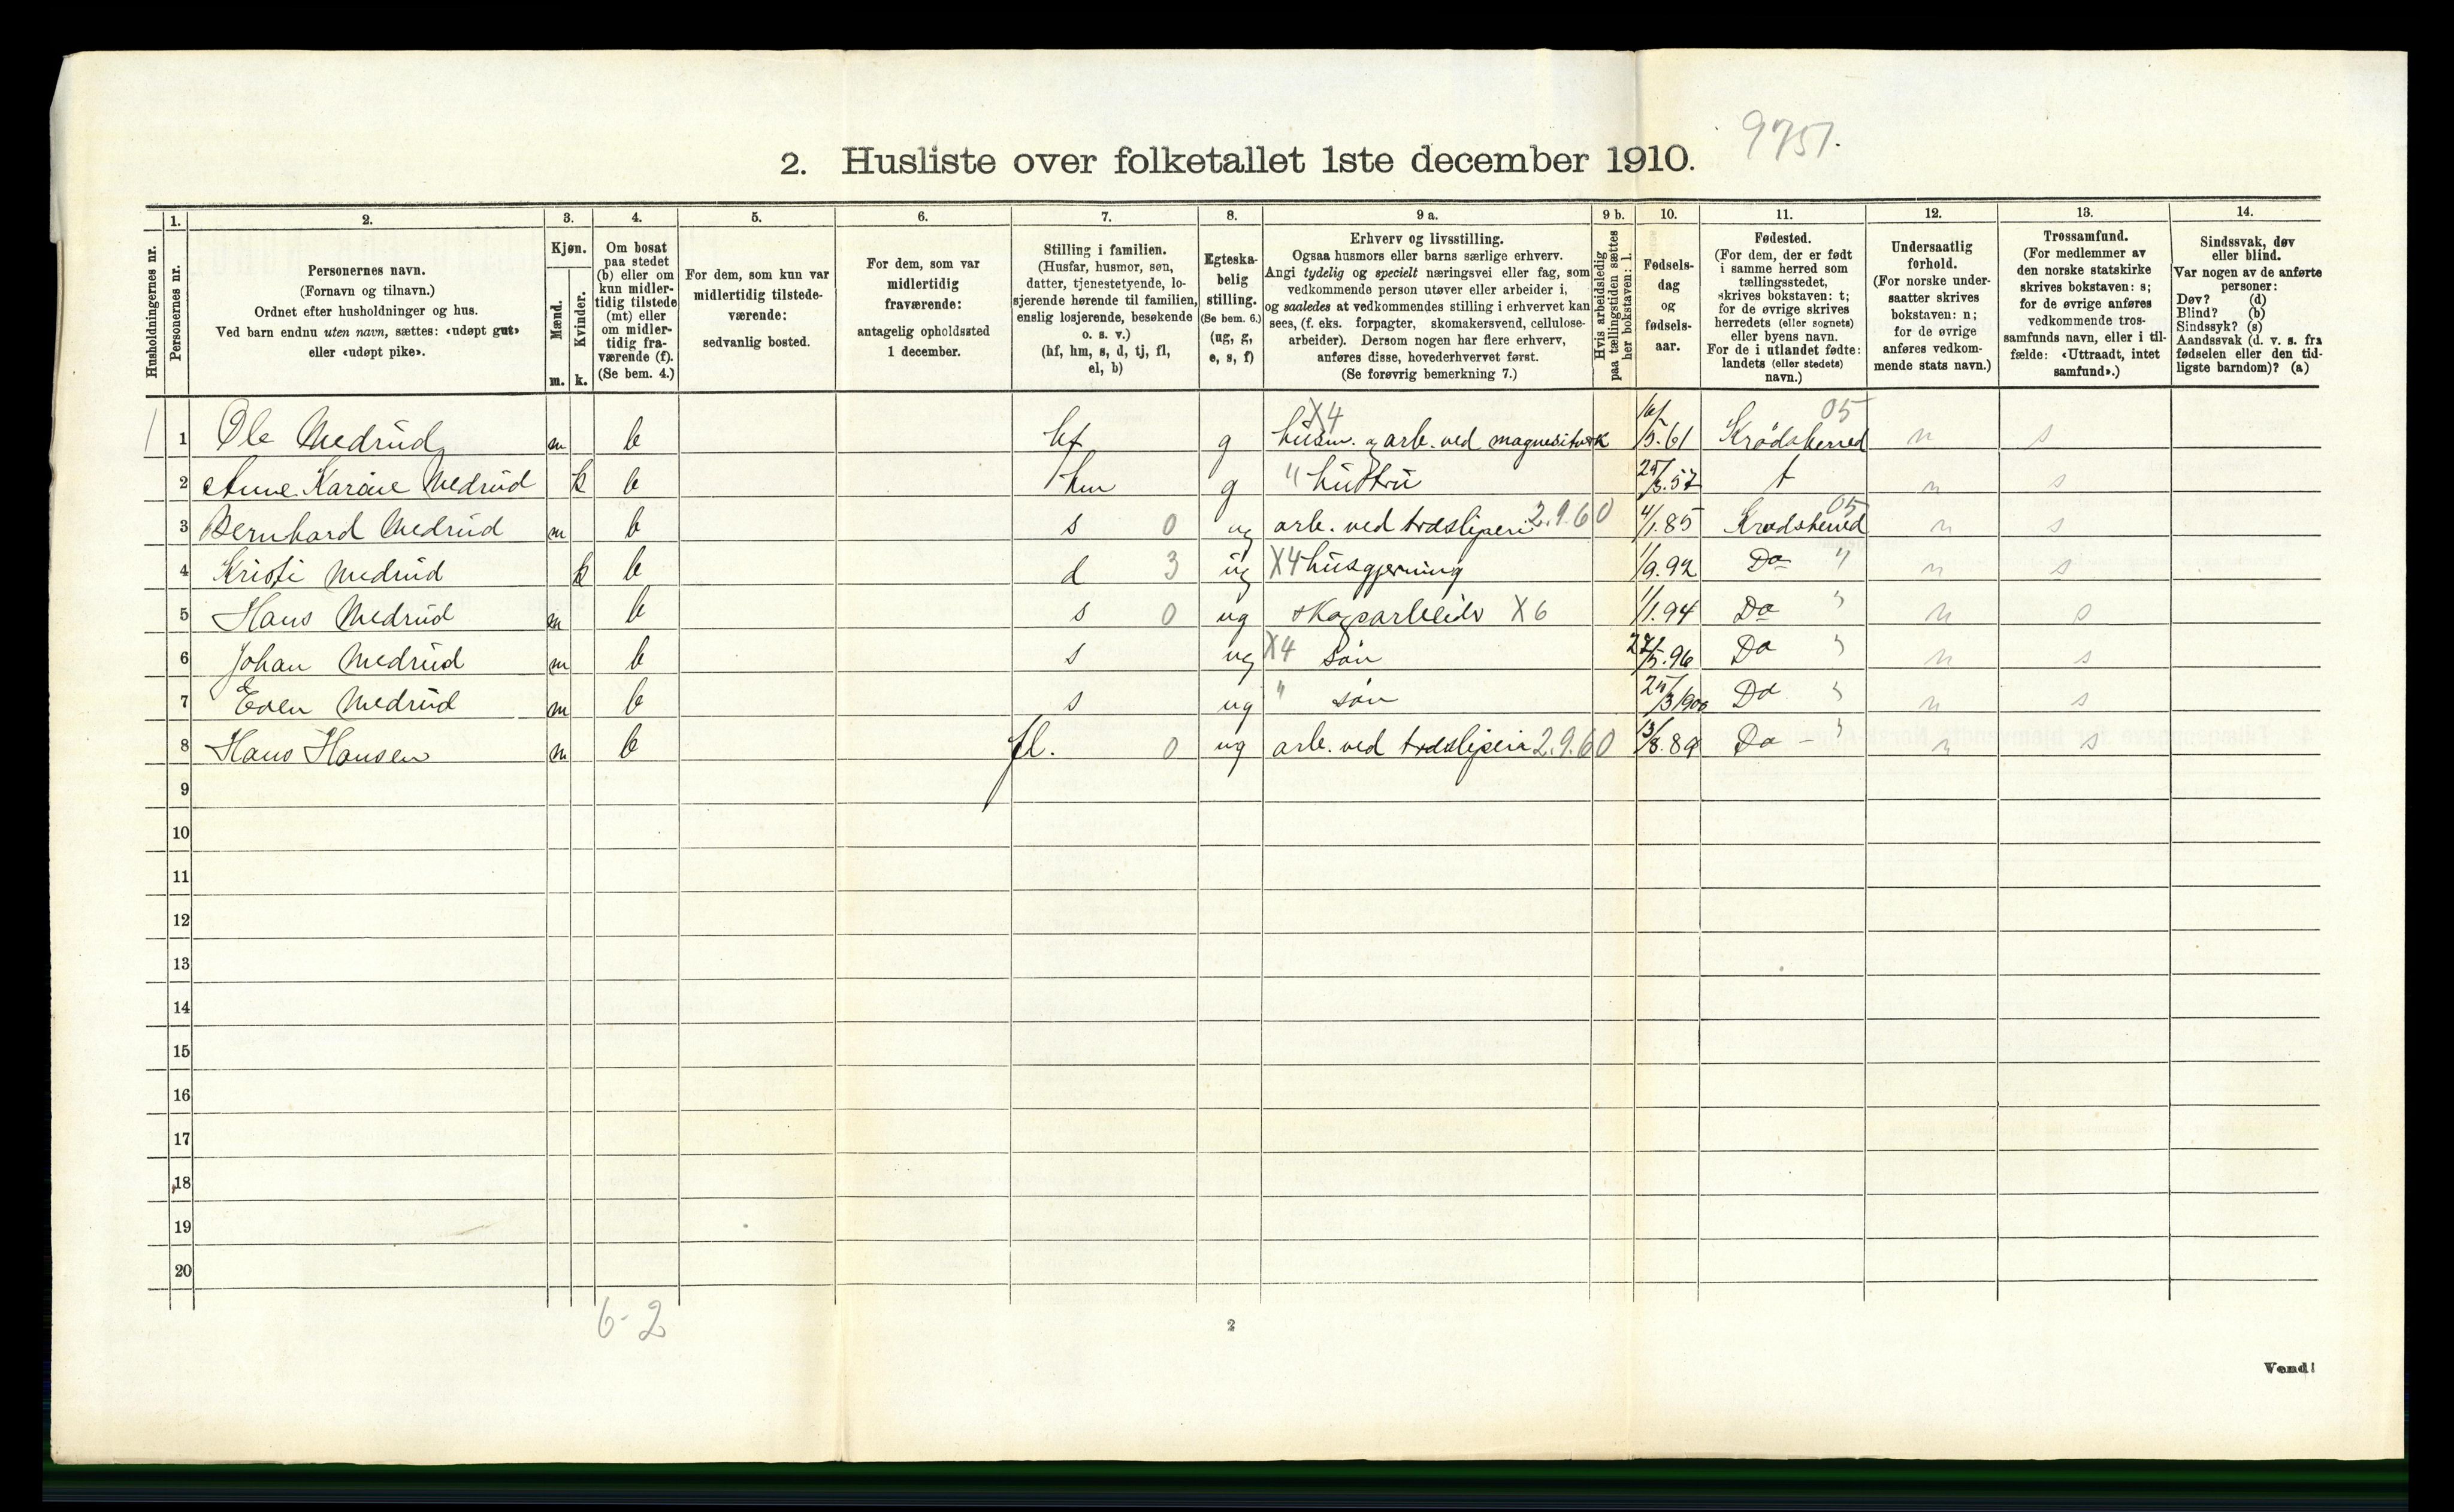 9751.
2. Husliste over folketallet 1ste december 1910.
Husholdningernes nr.
1.
Personernes nr.
2.
Personernes navn.
(Fornavn og tilnavn.)
Ordnet efter husholdninger og hus.
Ved barn endnu uten navn, sættes: «udøpt gut»
eller «udøpt pike».
3.
Kjøn.
Mænd.
Kvinder.
m. k.
4.
Om bosat
paa stedet
(b) eller om
kun midler-
tidig tilstede
(mt) eller
om midler-
tidig fra-
værende (f).
(Se bem. 4.)
5.
For dem, som kun var
midlertidig tilstede-
værende:
sedvanlig bosted.
6.
For dem, som var
midlertidig
fraværende:
antagelig opholdssted
1 december.
7.
Stilling i familien.
(Husfar, husmor, søn,
datter, tjenestetyende, lo-
sjerende hørende til familien,
enslig losjerende, besøkende
o. s. v.)
(hf, hm, s, d, tj, fl,
el, b)
8.
Egteska-
belig
stilling.
(Se bem. 6.)
(ug, g,
e, s, f)
9 a.
Erhverv og livsstilling.
Ogsaa husmors eller barns særlige erhverv.
Angi tydelig og specielt næringsvei eller fag, som
vedkommende person utøver eller arbeider i,
og saaledes at vedkommendes stilling i erhvervet kan
sees, (f. eks. forpagter, skomakersvend, cellulose-
arbeider). Dersom nogen har flere erhverv,
anføres disse, hovederhvervet først.
(Se forøvrig bemerkning 7.)
9 b.
Hvis arbeidsledig
paa tællingstiden sættes
her bokstaven: l.
10.
Fødsels-
dag
og
fødsels-
aar.
11.
Fødested.
(For dem, der er født
i samme herred som
tællingsstedet,
skrives bokstaven: t;
for de øvrige skrives
herredets (eller sognets)
eller byens navn.
For de i utlandet fødte:
landets (eller stedets)
navn.)
12.
Undersaatlig
forhold.
(For norske under-
saatter skrives
bokstaven: n;
for de øvrige
anføres vedkom-
mende stats navn.)
13.
Trossamfund.
(For medlemmer av
den norske statskirke
skrives bokstaven: s;
for de øvrige anføres
vedkommende tros-
samfunds navn, eller i til-
fælde: «Uttraadt, intet
samfund».)
14.
Sindssvak, døv
eller blind.
Var nogen av de anførte
personer:
Døv? (d)
Blind? (b)
Sindssyk? (s)
Aandssvak (d. v. s. fra
fødselen eller den tid-
ligste barndom)? (a)
X4 05
1 1 Ole Medrud m b hf g husm. og arb. ved magnesitverk 16/5.61 Krødsherred n s
2 Anne Karine Medrud k b hm g " hustru 25/3.57 t n s
3 Bernhard Medrud m b s 0 ug arb. ved træsliperi 2.9.60 4/1.85 Krødsherred 05 n s
4 Kristi Medrud k b d 3 ug X4 husgjerning 1/9.92 Do " n s
5 Hans Medrud m b s 0 ug skogsarbeide X6 1/1.94 Do " n s
6 Johan Medrud m b s ug X4 søn 27/5.96 Do " n s
7 Even Medrud m b s ug " søn 25/3 1900 Do " n s
8 Hans Hansen m b fl. 0 ug arb. ved træsliperi 2.9.60 13/8.89 Do - " n s
9
10
11
12
13
14
15
16
17
18
19
20
6-2
2
Vend!